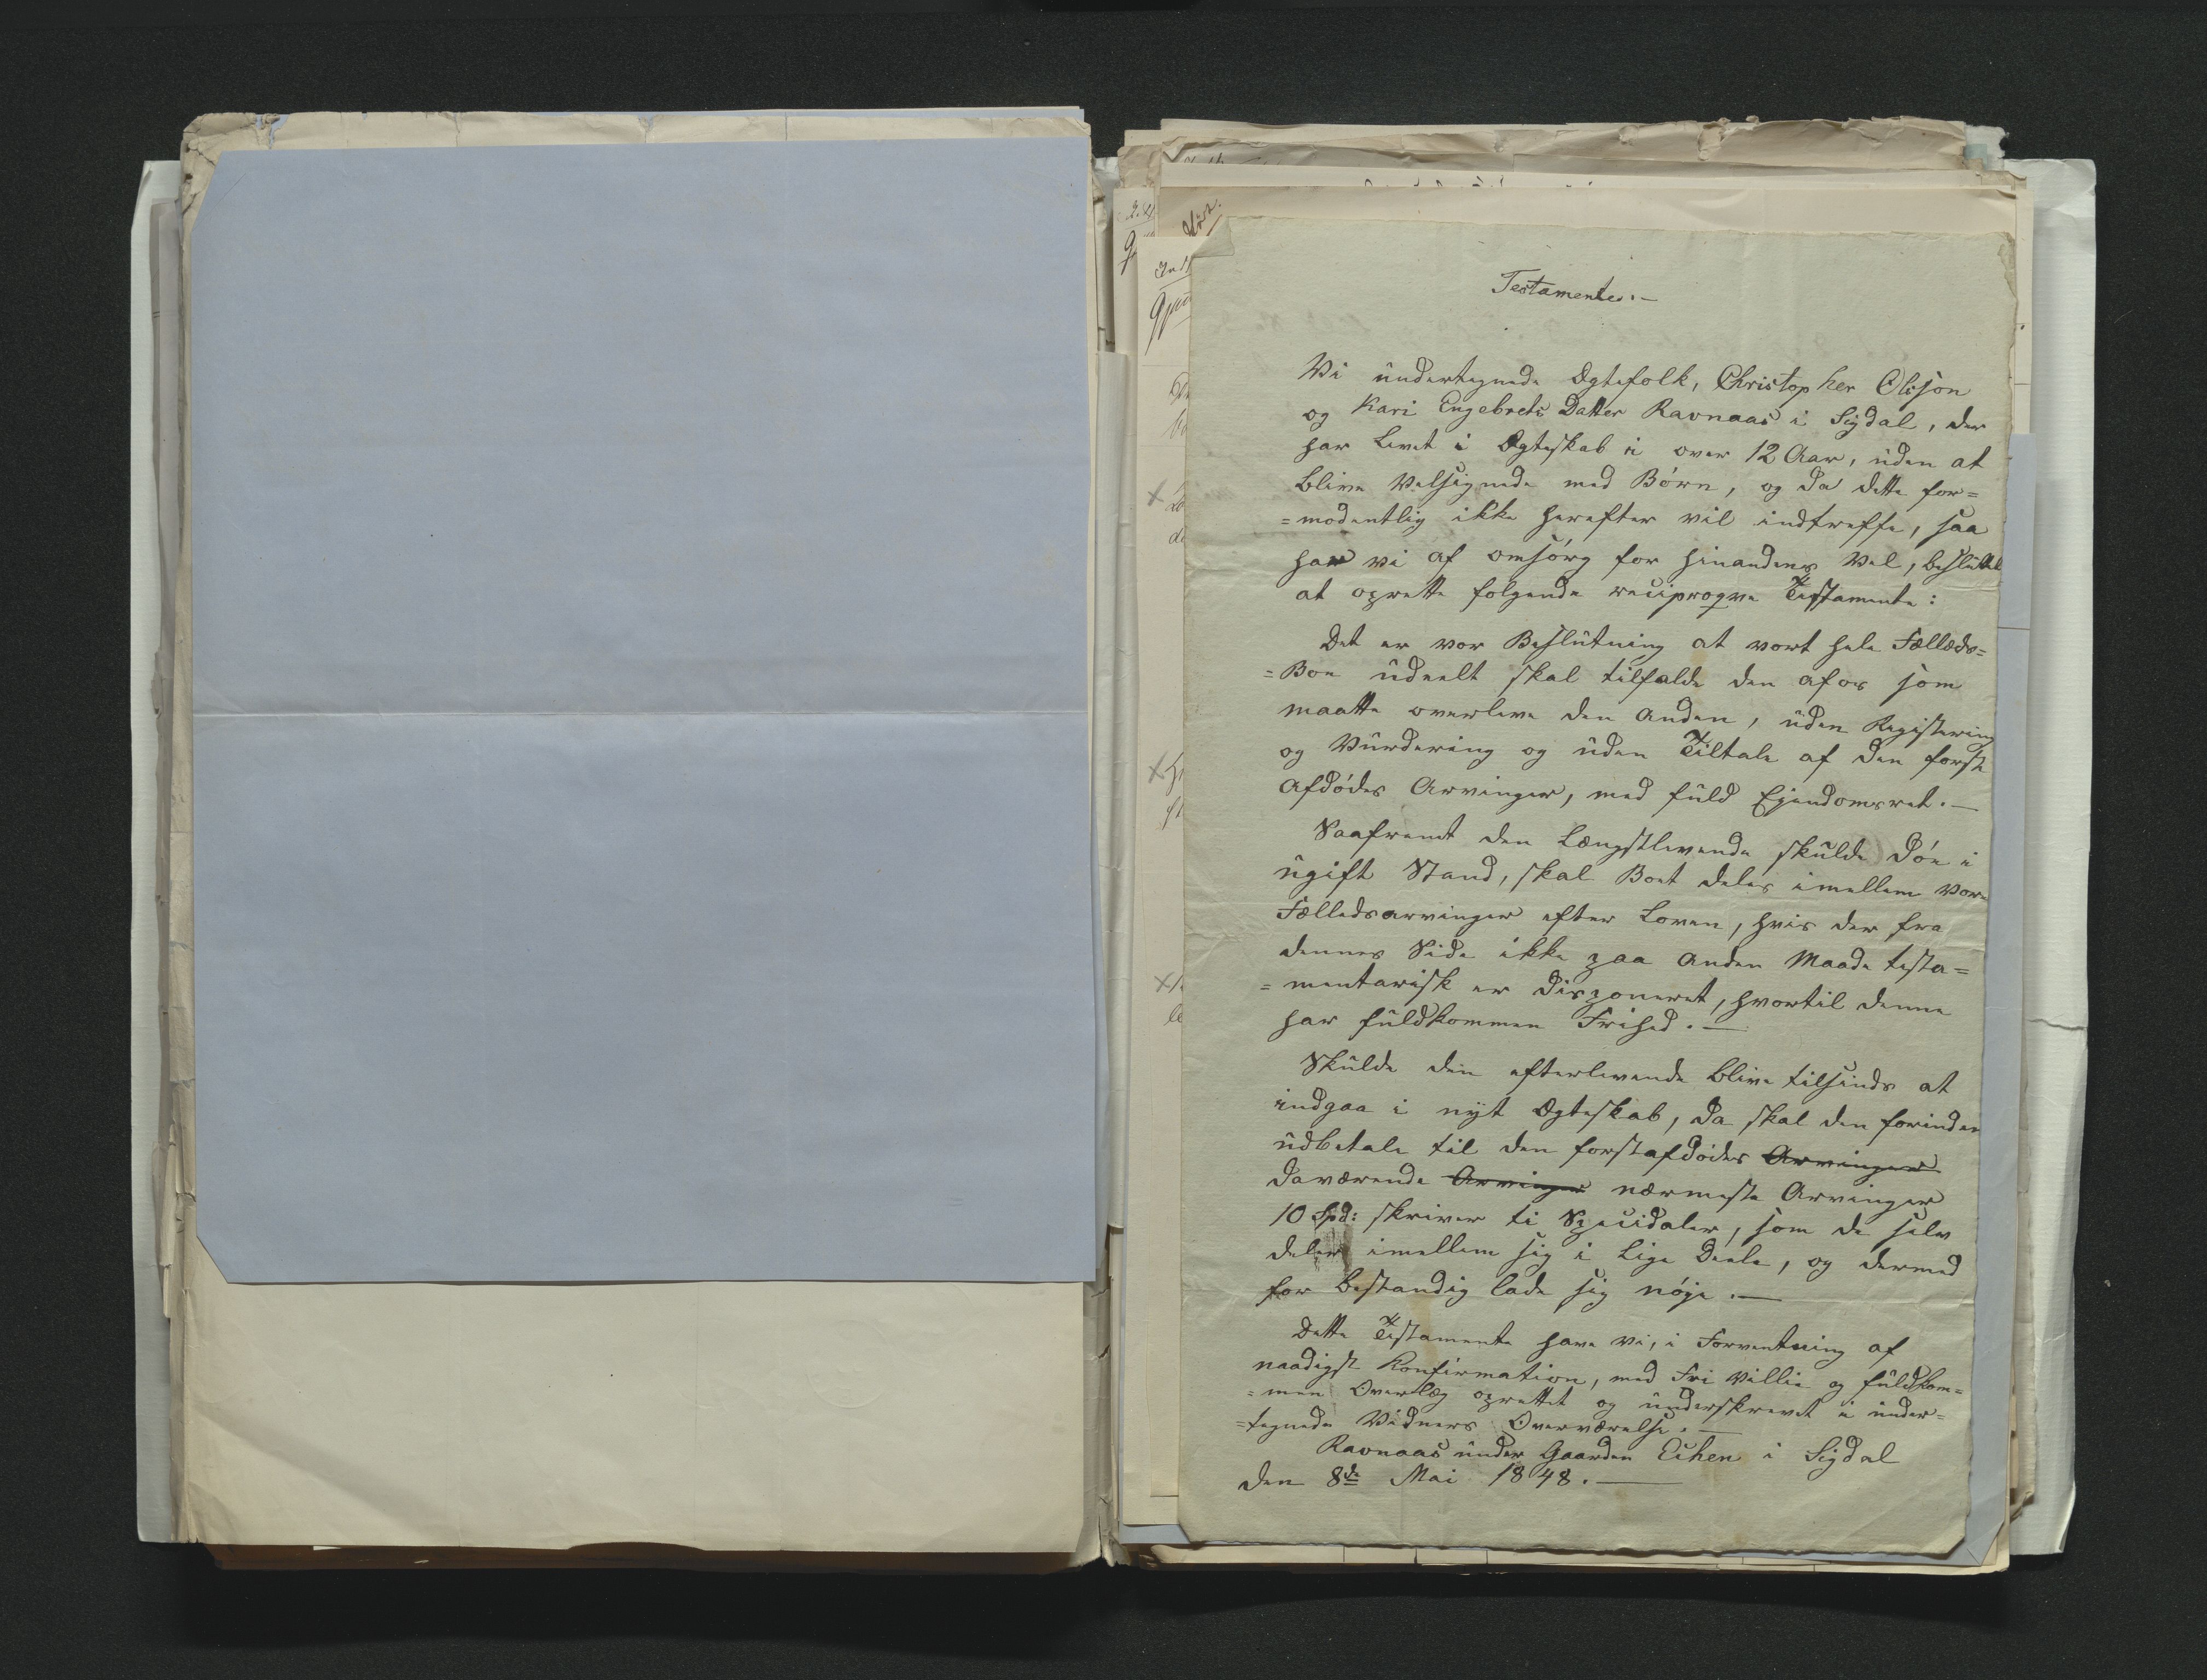 Testamente.—
Vi undertegnede Ægtefolk, Christopher Olsson
og Kari Engebrets Datter Ravnaas i Sigdal, der
har Levet i Ægteskab i over 12 Aar, uden at
blive Velsignede med Børn, og da dette for=
=modentlig ikke herefter vil indtreffe, saa
har vi af omsórg for hinandens Vel, besluttet
at oprette folgende reciproqve Testamente:
Det er vor Beslutning at vort hele Fælleds=
=Boe udeelt skal tilfalde den af os som
maatte overleve den anden, uden Registering
og Vurdering og uden Tiltale af den forst
Afdódes Arvinger, med fuld Ejendomsret.—
Saafremt den Længstlevende skulde Dóe i
ugift Stand, skal Boet deles imellem vore
Fælledsarvinger efter Loven, hvis der fra
dennes Side ikke paa anden Maade testa=
=mentarisk er disponeret, hvortil denne
har fuldkommen Frihed.—
Skulde den efterlevende blive tilsinds at
indgaa i nyt Ægteskab, da skal den forinden
udbetale til den forstafdódes Arvinger
daværende Arvinger nærmeste Arvinger
10 Spd: skriver ti Speciedaler, som de selv
deler imellem sig i Lige Deele, og dermed
for bestandig lade sig nóje.—
Dette Testamente have vi, i Forventning af
naadigst Konfirmation, med Fri Villie og fuldkom=
=men Overlæg oprettet og underskrevet i under=
=tegnede Vidners Overværelse.—
Ravnaas under Gaarden Eihen i Sigdal
den 8de Mai 1848.—